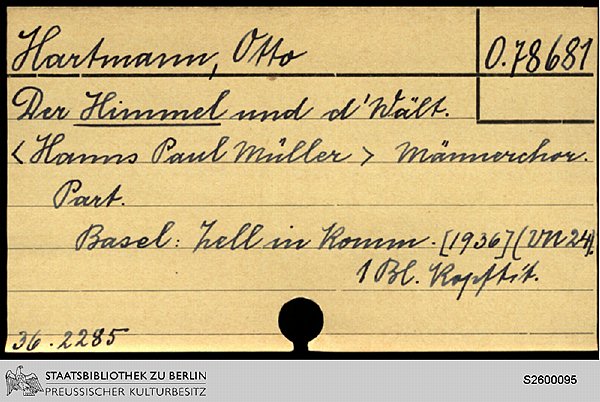 Hartmann, Otto
O.78681
Der Himmel und d'Wält.
<Hanns Paul Müller> Männerchor.
Part.
Basel: Zell in Komm. [1936] (VN 24).
1 Bl. Kopftit.
36.2285
STAATSBIBLIOTHEK ZU BERLIN
PREUSSISCHER KULTURBESITZ
S2600095